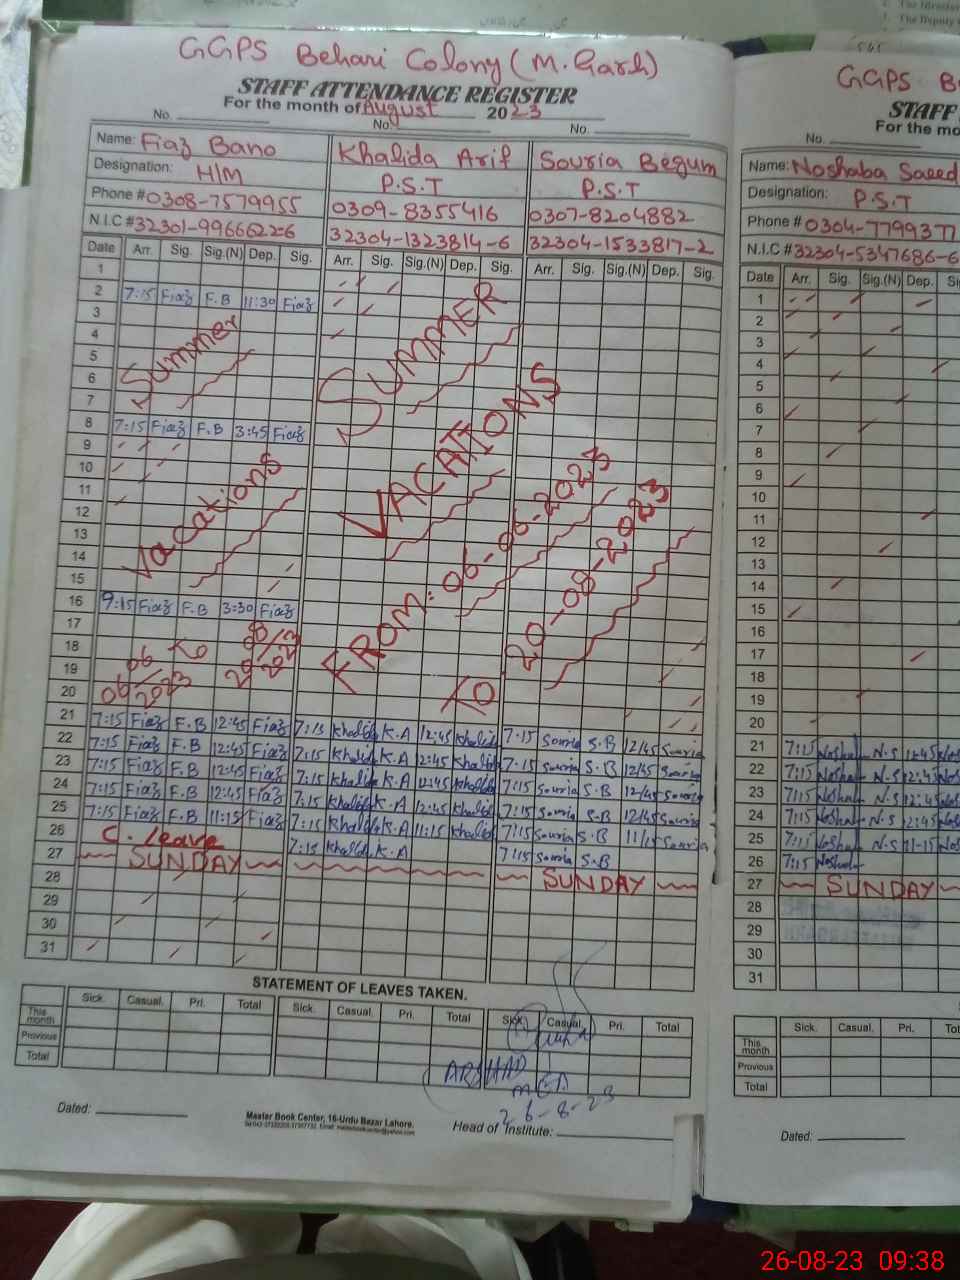 GGPS Behari Colony (M. Garh)
STAFF ATTENDANCE REGISTER
For the month of August 2023
No. No. No.
Name: Fiaz Bano Khalida Arif Souria Begum
Designation: H/M P.S.T P.S.T
Phone # 0308-7579955 0309-8355416 0307-8204882
N.I.C # 32301-9966622-6 32304-1323814-6 32304-1533817-2
Date Arr. Sig. Sig.(N) Dep. Sig. Arr. Sig. Sig.(N) Dep. Sig. Arr. Sig. Sig.(N) Dep. Sig.
1
2 7:15 Fiaz F.B 11:30 Fiaz
3
4
5
6
7
8 7:15 Fiaz F.B 3:45 Fiaz
9
10
11
12
13
14
15
16 9:15 Fiaz F.B 3:30 Fiaz
17
18
19
20
Summer
Vacations
06/06/2023 To 20/08/2023
SUMMER
VACATIONS
FROM: 06-06-2023
TO 20-08-2023
21 7:15 Fiaz F.B 12:45 Fiaz 7:15 Khalida K.A 12:45 Khalida 7:15 Souria S.B 12/45 Souria
22 7:15 Fiaz F.B 12:45 Fiaz 7:15 Khalida K.A 12:45 Khalida 7:15 Souria S.B 12/45 Souria
23 7:15 Fiaz F.B 12:45 Fiaz 7:15 Khalida K.A 12:45 Khalida 7:15 Souria S.B 12/45 Souria
24 7:15 Fiaz F.B 12:45 Fiaz 7:15 Khalida K.A 12:45 Khalida 7:15 Souria S.B 12/45 Souria
25 7:15 Fiaz F.B 11:15 Fiaz 7:15 Khalida K.A 11:15 Khalida 7:15 Souria S.B 11/15 Souria
26 C. leave 7:15 Khalida K.A 7:15 Souria S.B
27 SUNDAY SUNDAY
28
29
30
31
STATEMENT OF LEAVES TAKEN.
Sick. Casual. Pri. Total Sick. Casual. Pri. Total Sick. Casual. Pri. Total
This month
Previous
Total
ARSHAD
MEA
26-8-23
Dated:
Master Book Center, 16-Urdu Bazar Lahore.
Head of Institute:
GGPS B
STAFF
For the mo
No.
Name: Noshaba Saeed
Designation: P.S.T
Phone # 0304-7799377
N.I.C # 32304-5347686-6
Date Arr. Sig. Sig.(N) Dep. Si
1
2
3
4
5
6
7
8
9
10
11
12
13
14
15
16
17
18
19
20
21 7:15 Noshab N.S 12:45 Nos
22 7:15 Noshab N.S 12:45 Nos
23 7:15 Noshab N.S 12:45 Nos
24 7:15 Noshab N.S 12:45 Nos
25 7:15 Noshab N.S 11-15 Nos
26 7:15 Noshab
27 SUNDAY
28
29
30
31
Sick. Casual. Pri. Tot
This month
Previous
Total
Dated:
26-08-23 09:38